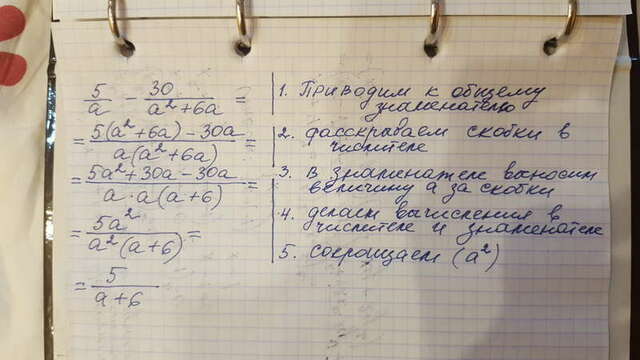 5/a - 30/(a²+6a) =
= (5(a²+6a) - 30a)/(a(a²+6a)) =
= (5a²+30a-30a)/(a·a(a+6)) =
= 5a²/(a²(a+6)) =
= 5/(a+6)
1. Приводим к общему
знаменателю
2. раскрываем скобки в
числителе
3. В знаменателе выносим
величину а за скобки
4. делаем вычисления в
числителе и знаменателе
5. сокращаем (a²)